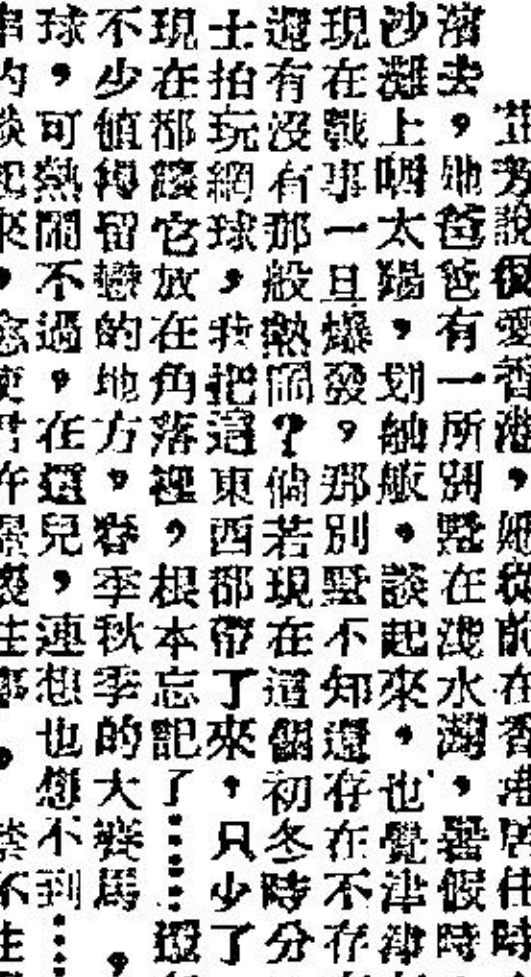 芳說愛香港，她從前在香港居住時
濱去，她爸爸有一所別墅在淺水灣，暑假時
沙灘上晒太陽，划舢舨，談起來，也覺津津
現在戰事一旦爆發，那別墅不知還存在不存
還有沒有那般熱鬧？倘若現在這個初冬時分
士拍玩網球，我把這東西都帶了來，只少了
現在都讓它放在角落裡，根本忘記了……還
不少值得留戀的地方，春季秋季的大賽馬，
球，可熱鬧不過，在這兒，連想也想不到……